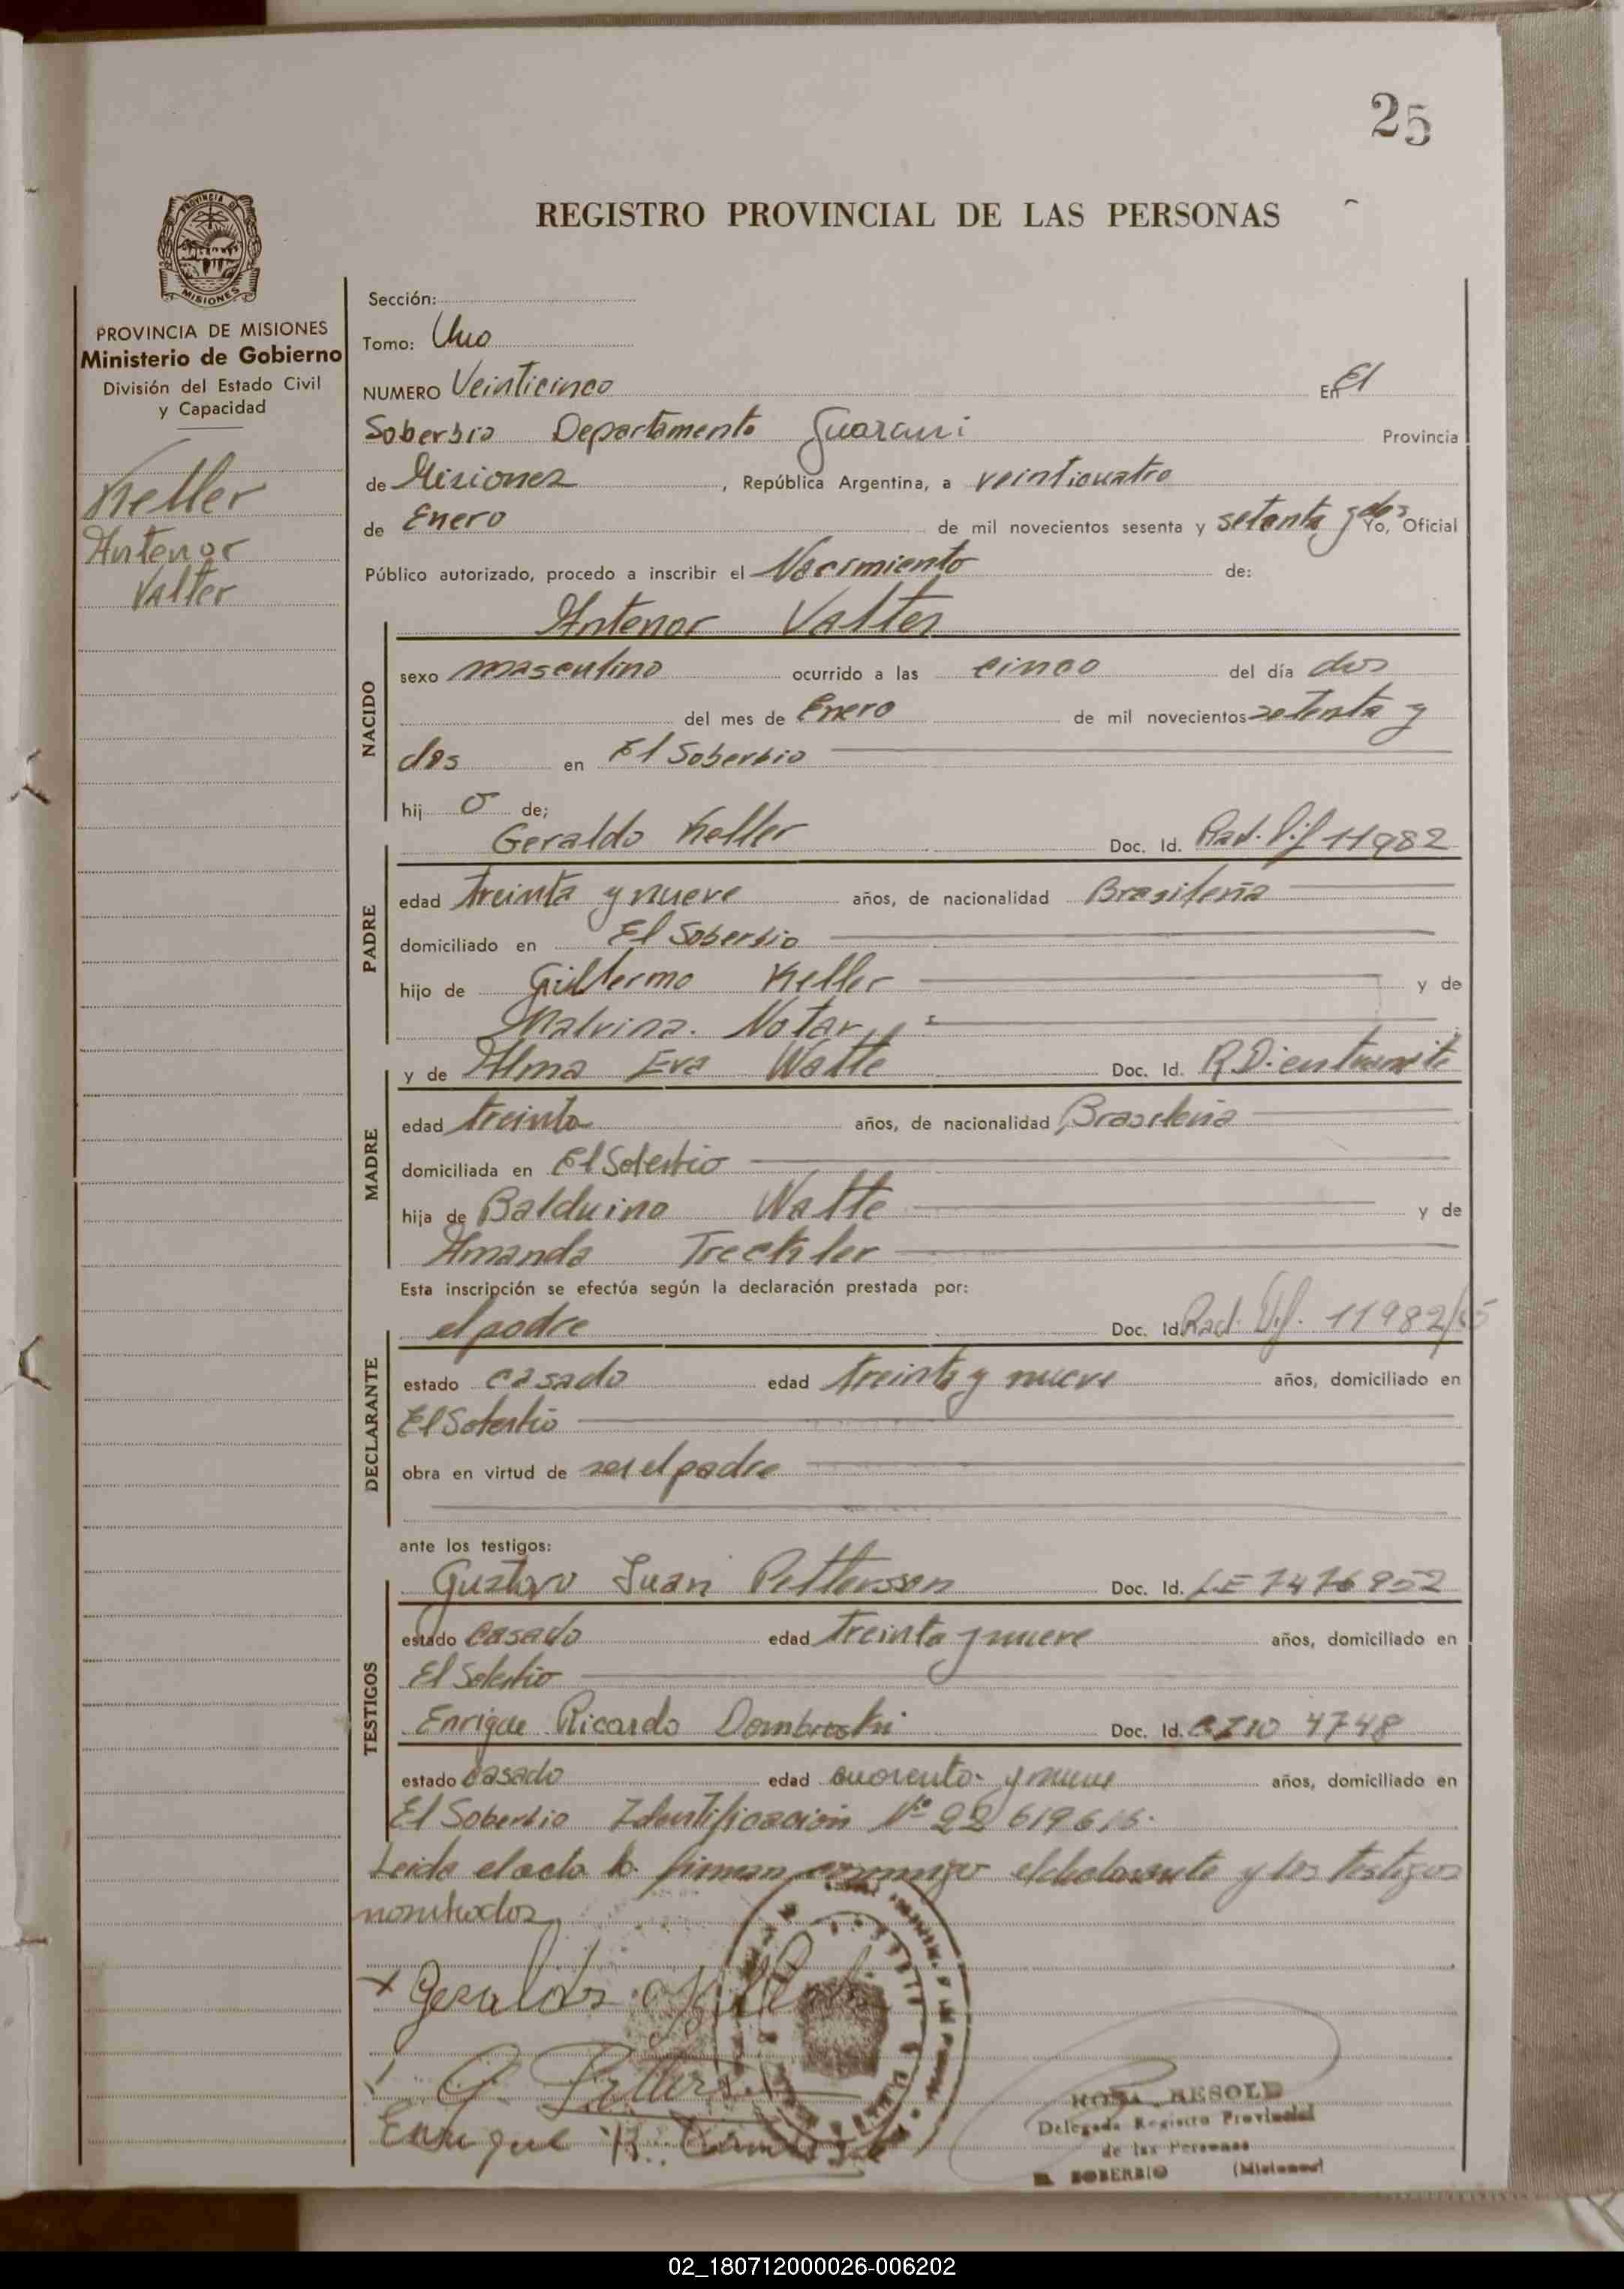 25
REGISTRO PROVINCIAL DE LAS PERSONAS
PROVINCIA DE MISIONES
MISIONES
PROVINCIA DE MISIONES
Ministerio de Gobierno
División del Estado Civil
y Capacidad
Keller
Antenor
Valter
Sección:
Tomo: Uno
NUMERO Veinticinco En El
Soberbio Departamento Guarani Provincia
de Misiones, República Argentina, a veinticuatro
de Enero de mil novecientos sesenta y setenta y dos Yo, Oficial
Público autorizado, procedo a inscribir el Nacimiento de:
Antenor Valter
NACIDO
sexo masculino ocurrido a las cinco del día dos
del mes de Enero de mil novecientos setenta y
dos en El Soberbio
hij o de;
Geraldo Keller Doc. Id. Rad. Dif 11982
PADRE
edad treinta y nueve años, de nacionalidad Brasileña
domiciliado en El Soberbio
hijo de Guillermo Keller y de
Malvina. Notar
y de Alma Eva Watte Doc. Id. R.D. en tramite
MADRE
edad treinta años, de nacionalidad Brasileña
domiciliada en El Soberbio
hija de Balduino Watte y de
Amanda Trechler
Esta inscripción se efectúa según la declaración prestada por:
el padre Doc. Id. Rad. Dif. 11982/65
DECLARANTE
estado casado edad treinta y nueve años, domiciliado en
El Soberbio
obra en virtud de ser el padre
ante los testigos:
Gustavo Juan Pettersson Doc. Id. LE 7476952
TESTIGOS
estado casado edad treinta y nueve años, domiciliado en
El Soberbio
Enrique Ricardo Dombroski Doc. Id. 4748
estado casado edad cuarenta y nueve años, domiciliado en
El Soberbio Identificacion Nº 22619615.
Leida el acta la firman conmigo el declarante y los testigos
nombrados
x Geraldo Keller
G. Petterson
Enrique R.
ROSA RESOLD
Delegada Registro Provincial
de las Personas
EL SOBERBIO (Misiones)
02_180712000026-006202